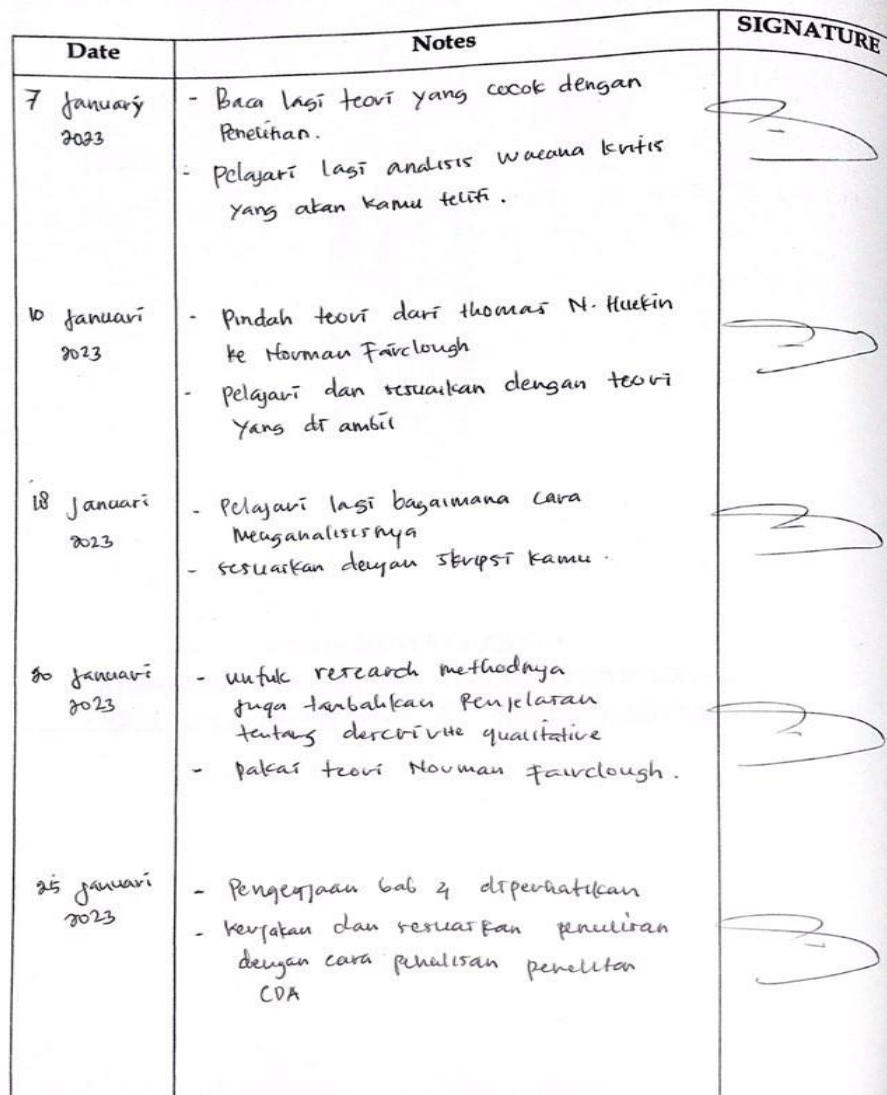 Date Notes SIGNATURE
7 January - Baca lagi teori yang cocok dengan
2023 Penelitian.
- pelajari lagi analisis wacana kritis
yang akan kamu teliti.
10 Januari - Pindah teori dari thomas N. Huckin
2023 ke Norman Fairclough
- pelajari dan sesuaikan dengan teori
yang di ambil
18 Januari - Pelajari lagi bagaimana cara
2023 menganalisisnya
- sesuaikan dengan skripsi kamu.
20 Januari - untuk research methodnya
2023 juga tambahkan Penjelasan
tentang descrivite qualitative
- pakai teori Norman Fairclough.
25 januari - Pengerjaan bab 4 diperhatikan
2023 - kerjakan dan sesuaikan penulisan
dengan cara penulisan penelitan
CDA